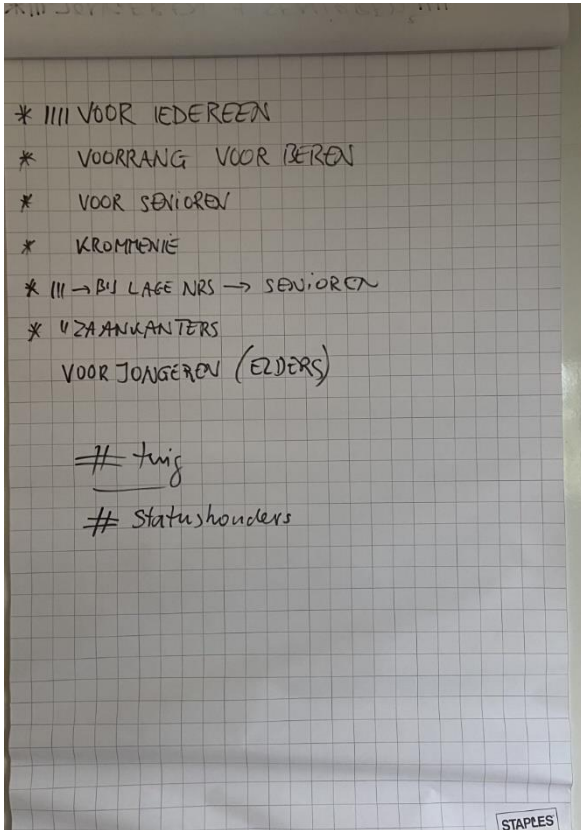 * IIII VOOR IEDEREEN
* VOORRANG VOOR BEREN
* VOOR SENIOREN
* KROMMENIE
* III → BIJ LAGE NRS → SENIOREN
* II ZAANKANTERS
VOOR JONGEREN (ELDERS)
# tuig
# Statushouders
STAPLES